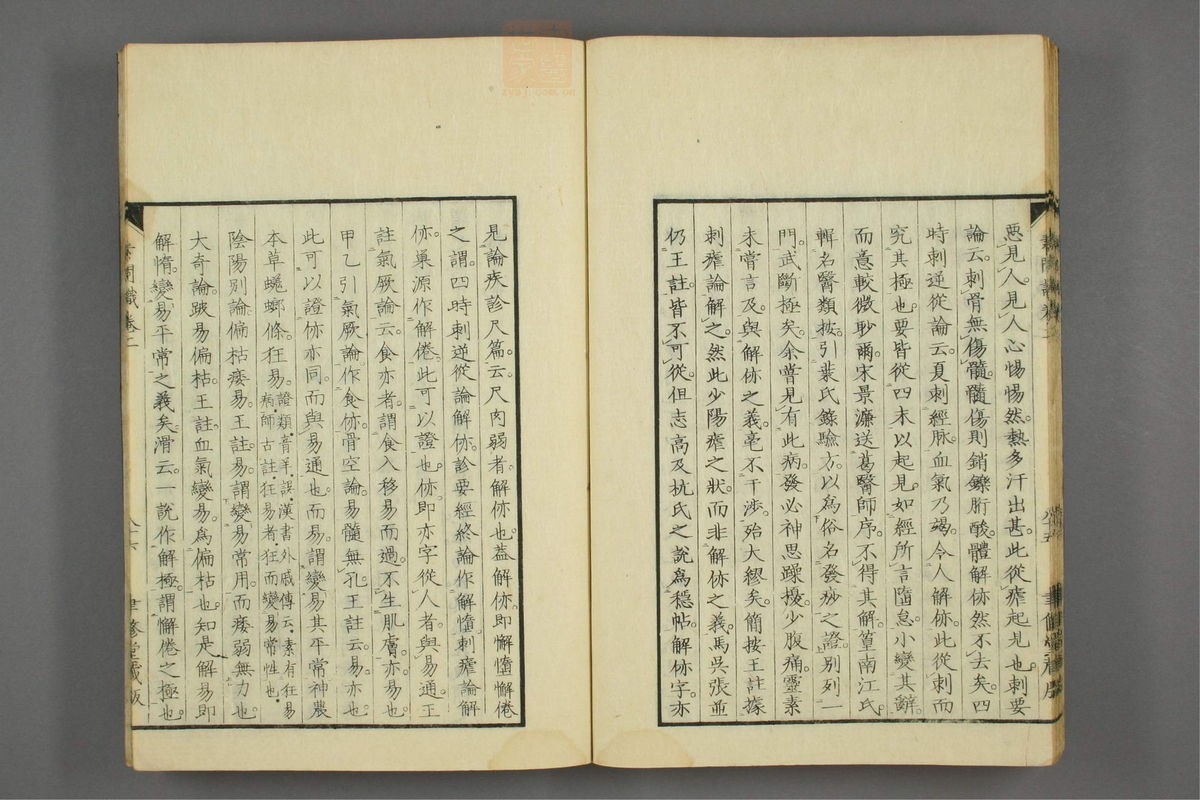 惡見人。見人心惕惕然。熱多汗出甚。此從瘧起見也。刺要
論云。刺骨無傷髓。髓傷則銷鑠胻酸。體解㑊然不去矣。四
時刺逆從論云。夏刺經脉。血氣乃竭。令人解㑊。此從刺而
究其極也。要皆從四末以起見。如經所言隋怠。小變其辭。
而意較微眇爾。宋景濂送葛醫師序。不得其解。篁南江氏
輯名醫類按。引葉氏錄驗方。以爲俗名發痧之證。別列一
門。武斷極矣。余嘗見有此病。發必神思躁擾。少腹痛。靈素
未嘗言及。與解㑊之義。毫不干涉。殆大繆矣。簡按王註據
刺瘧論解之。然此少陽瘧之狀。而非解㑊之義。馬吳張並
仍王註。皆不可從。但志高及杭氏之說爲穩帖。解㑊字。亦
見論疾診尺篇。云尺肉弱者。解㑊也。葢解㑊。即懈㦬懈倦
之謂。四時刺逆從論解㑊。診要經終論作解㦬。刺瘧論解
㑊。巢源作解倦。此可以證也。㑊。即亦字從人者。與易通。王
註氣厥論云。食亦者。謂食入移易而過。不生肌膚。亦易也。
甲乙引氣厥論作食㑊。骨空論。易髓無孔。王註云。易。亦也。
此可以證㑊亦同。而與易通也。而易。謂變易其平常。神農
本草蜣蜋條。狂易。證類音羊。誤。漢書外戚傳云。素有狂易
病。師古註。狂易者。狂而變易常性也。
陰陽別論。偏枯痿易。王註。易。謂變易常用。而痿弱無力也。
大奇論。跛易偏枯。王註。血氣變易。爲偏枯也。知是解易即
解惰。變易平常之義矣。滑云。一說作解極。謂懈倦之極也。
素問識卷二
聿修堂藏版